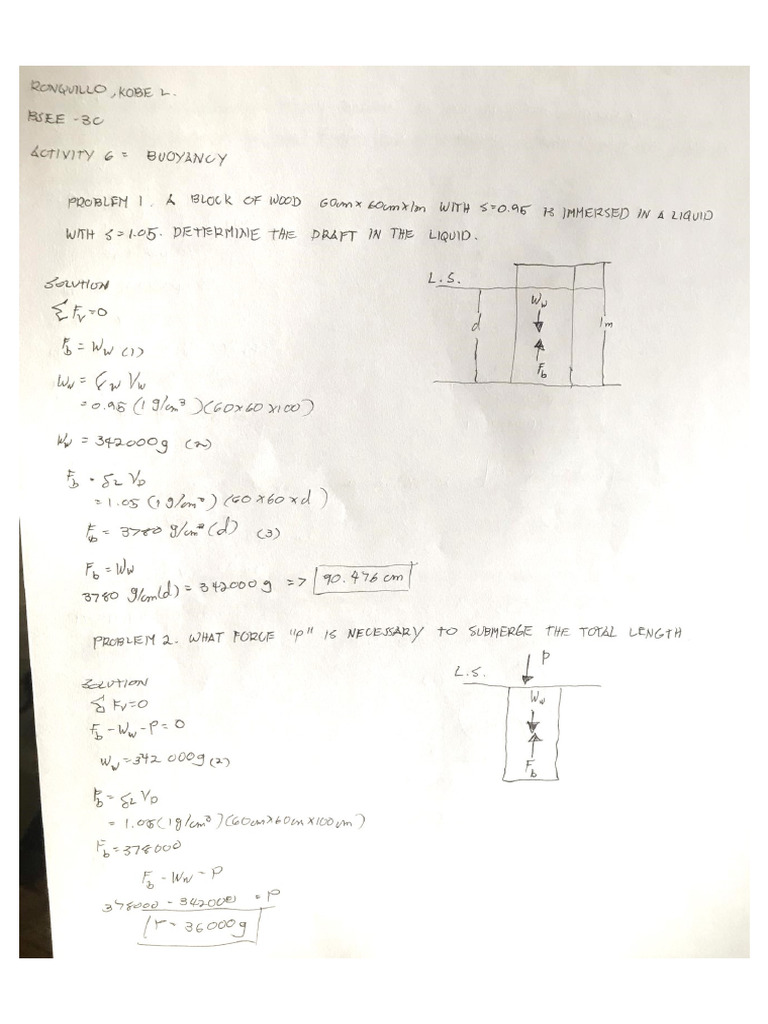 RONQUILLO, KOBE L.
BSEE - 3C
ACTIVITY 6 = BUOYANCY
PROBLEM 1. A BLOCK OF WOOD 60cm x 60cm x 1m WITH S=0.95 IS IMMERSED IN A LIQUID
WITH S=1.05. DETERMINE THE DRAFT IN THE LIQUID.
SOLUTION
L.S.
d
Ww
Fb
1m
ΣFv=0
Fb = Ww (1)
Ww = δw Vw
= 0.95 (1 g/cm³)(60x60x100)
Ww = 342000g (2)
Fb = δL VD
= 1.05 (1g/cm³) (60 x 60 x d)
Fb = 3780 g/cm (d) (3)
Fb = Ww
3780 g/cm(d) = 342000g => 90.476 cm
PROBLEM 2. WHAT FORCE "P" IS NECESSARY TO SUBMERGE THE TOTAL LENGTH
SOLUTION
L.S.
P
Ww
Fb
ΣFv=0
Fb - Ww - P = 0
Ww = 342 000g (2)
Fb = δL VD
= 1.05 (1g/cm³) (60cm x 60cm x 100cm)
Fb = 378000
Fb - Ww = P
378000 - 342000 = P
P = 36000g